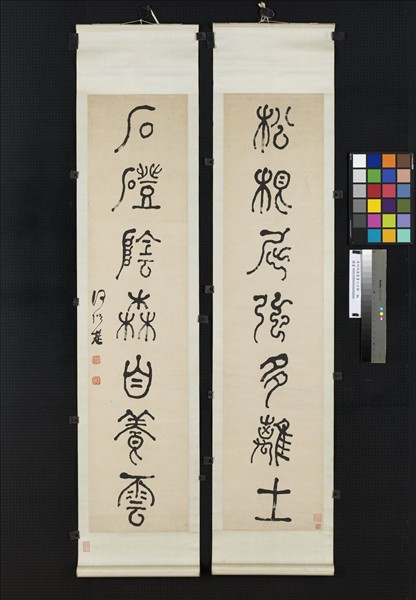 松根屈強多離土
石磴陰森自養雲
何紹基